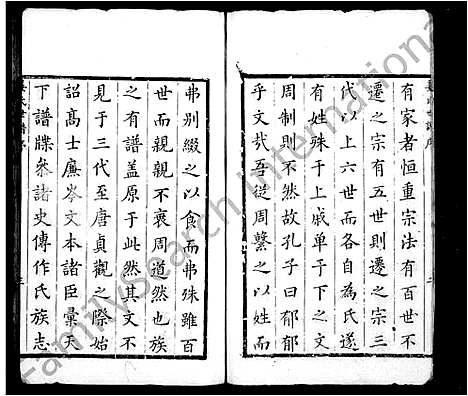 有家者恒重宗法有百世不
遷之宗有五世則遷之宗三
代以上六世而各自為氏遂
有姓殊于上戚单于下之文
周制則不然故孔子曰郁郁
乎文哉吾從周繫之以姓而
弗別綴之以食而弗殊雖百
世而親親不衰周道然也族
之有譜盖原于此然其文不
見于三代至唐貞觀之際始
詔髙士廉岑文本諸臣彙天
下譜牒叅諸史傳作氏族志
FamilySearch International